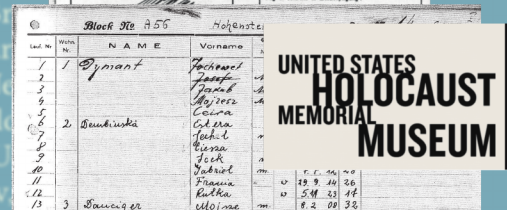 Block № A56 Hohenste
Lauf. Nr. Wohn. Nr. NAME Vorname
1 1 Dymant Jochewet
2 Josef
3 Jakob
4 Mojzesz
5 Ceira
6 2 Dembińska Estera
7 Jechil
8 Eiesza
9 Jock
10 Gabriel m
11 Frania w 29. 9. 14 26
12 Rutka w 5. 11 23 17
13 3 Danciger Mojne m. 8. 2 08 32
UNITED STATES
HOLOCAUST
MEMORIAL
MUSEUM